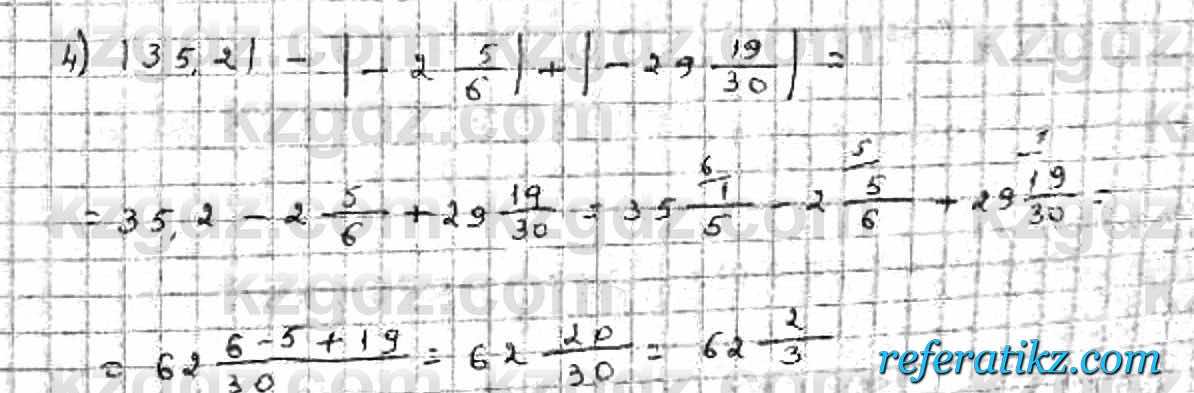 4) |35,2| - |-2 5/6| + |-29 19/30| =
= 35,2 - 2 5/6 + 29 19/30 = 35 1/5 (6) - 2 5/6 (5) + 29 19/30 (1) =
= 62 (6-5+19)/30 = 62 20/30 = 62 2/3
kzgdz.com
referatikz.com